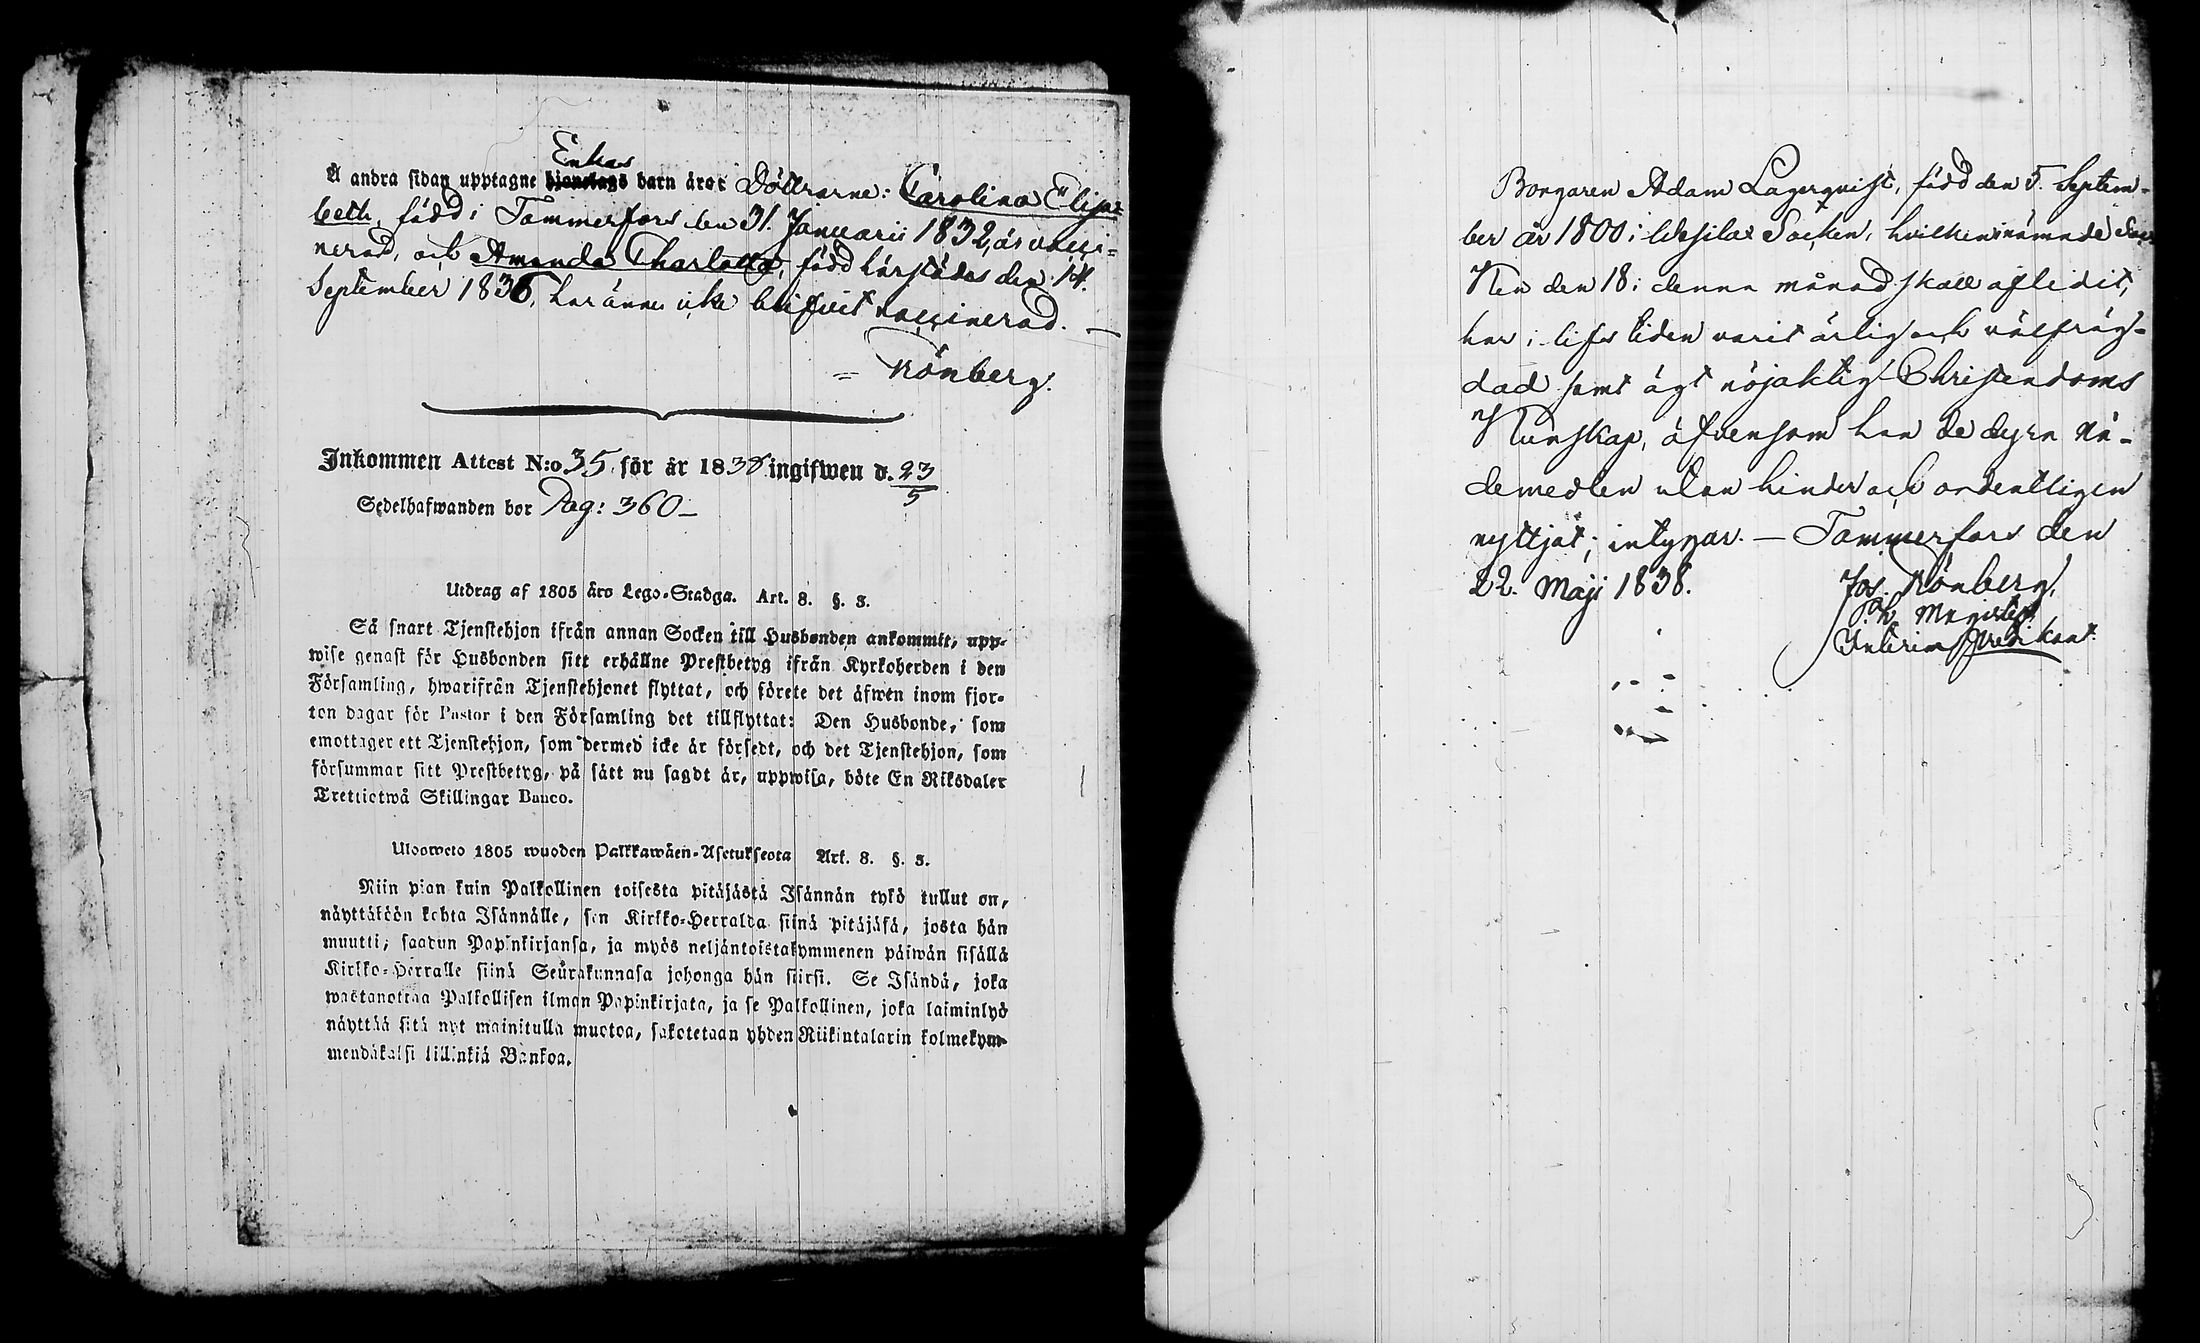 Enkas
Å andra sidan upptagne hjonelags barn äro: Döttrarne: Carolina Elisa-
beth, född i Tammerfors den 31. Januarii 1832, är vacci-
nerad, och Amanda Charlotta, född härstädes den 14.
September 1836, har ännu icke blifvit vaccinerad. —
= Rönberg.
Inkommen Attest N:o 35. för år 1838 ingifwen d. 23/5
Sedelhafwanden bor Pag: 360 —
Utdrag af 1805 års Lego-Stadga. Art. 8. §. 3.
Så snart Tjenstehjon ifrån annan Socken till Husbonden ankommit, upp-
wise genast för Husbonden sitt erhållne Prestbetyg ifrån Kyrkoherden i den
Församling, hwarifrån Tjenstehjonet flyttat, och förete det äfwen inom fjor-
ton dagar för Pastor i den Församling det tillflyttat: Den Husbonde, som
emottager ett Tjenstehjon, som dermed icke är försedt, och det Tjenstehjon, som
försummar sitt Prestbetyg, på sätt nu sagdt är, uppwisa, böte En Riksdaler
Trettiotwå Skillingar Banco.
Uloswеto 1805 wuoden Palkkawäen-Asetuksesta Art. 8. §. 3.
Niin pian kuin Palkollinen toisesta pitäjästä Isännän tykö tullut on,
näyttäköön kohta Isännälle, sen Kirkko-Herralda siinä pitäjäsä, josta hän
muutti, saadun Papinkirjansa, ja myös neljäntoistakymmenen päiwän sisällä
Kirkko-Herralle siinä Seurakunnasa johonga hän siirsi. Se Isändä, joka
wastanottaa Palkollisen ilman Papinkirjata, ja se Palkollinen, joka laiminlyö
näyttää sitä nyt mainitulla muotoa, sakotetaan yhden Riikintalarin kolmekym-
mendäkaksi killinkiä Bankoa.
Borgaren Adam Lagerqvist, född den 5. Septem-
ber år 1800 i Idesilax Socken, hvilken i nämnde Soc-
ken den 18 i denna månad skall aflidit,
har i lifstiden varit ärlig och välfräg-
dad samt ägt nöjaktig Christendoms
Kunskap, äfvensom han de dyra Nå-
demedlen utan hinder och ordentligen
nyttjat; intygar. — Tammerfors den
22. Maji 1838. Jos. Rönberg,
Ph. Magister
Interims Predikant.